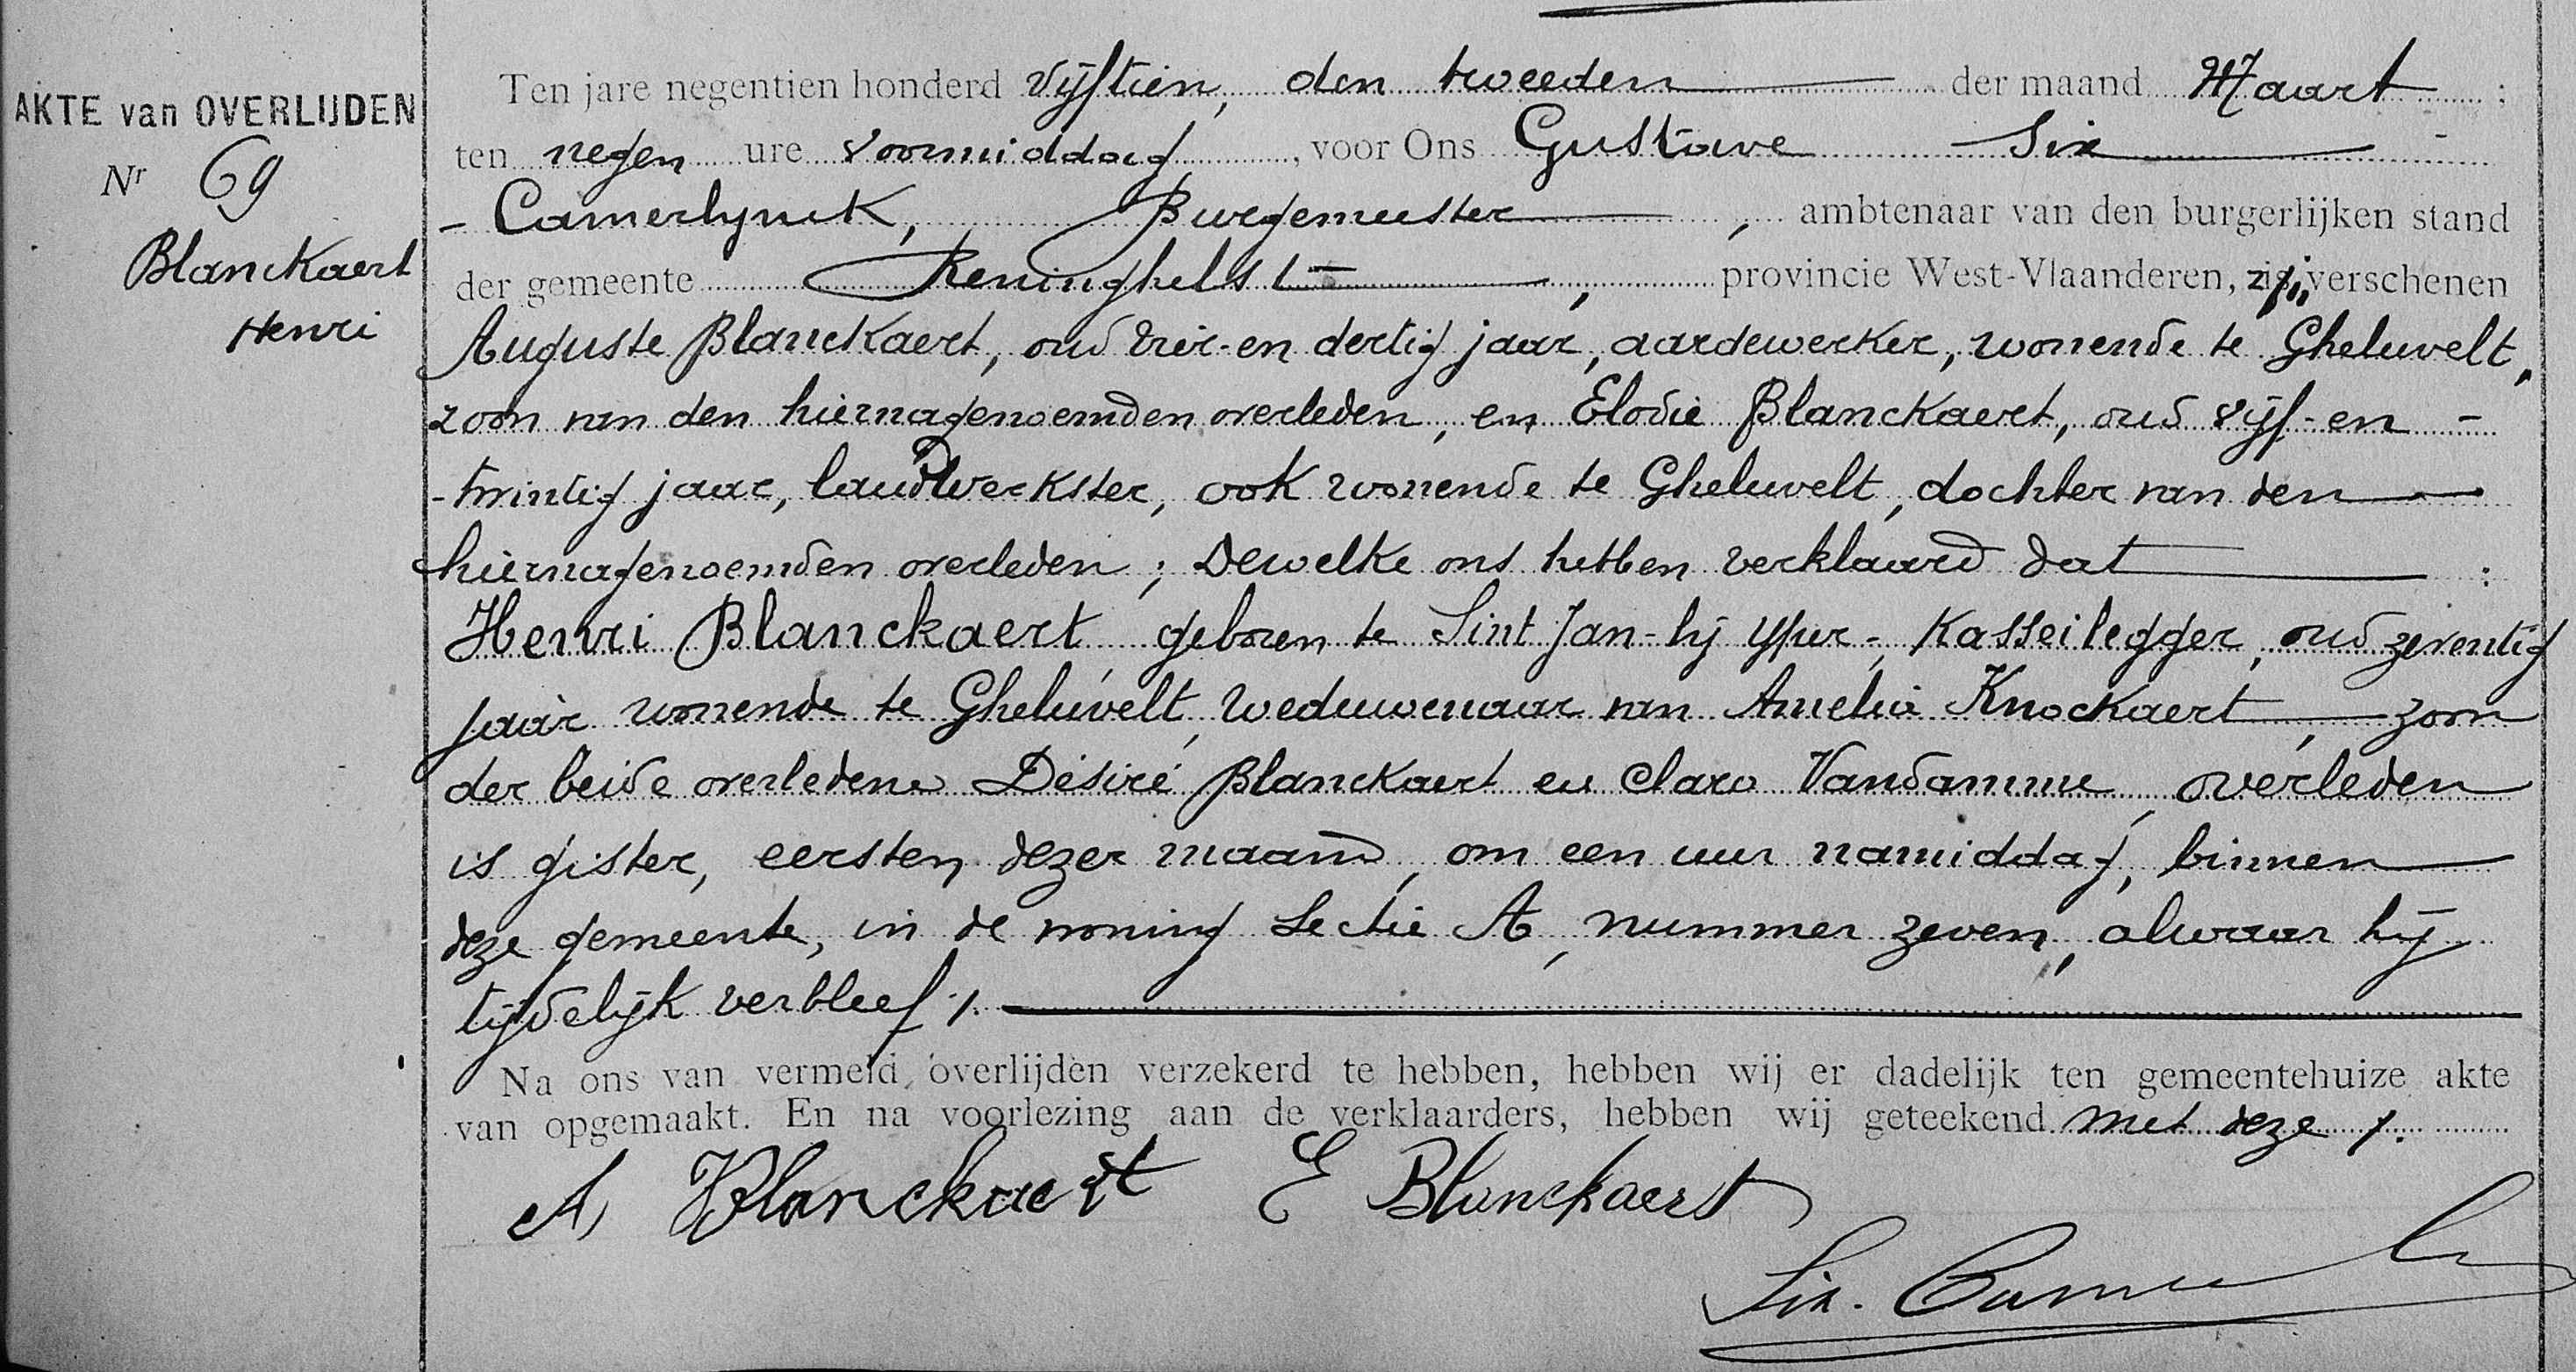 AKTE van OVERLIJDEN
Nr 69
Blanckaert
Henri
Ten jare negentien honderd vijftien, den tweeden der maand Maart
ten negen ure voormiddag, voor Ons Gustave Six
- Camerlynck, Burgemeester, ambtenaar van den burgerlijken stand
der gemeente Reninghelst, provincie West-Vlaanderen, zijn verschenen
Auguste Blanckaert, oud vier-en dertig jaar, aardewerker, wonende te Gheluvelt,
zoon van den hiernagenoemden overleden, en Elodie Blanckaert, oud vijf-en -
-twintig jaar, landwerkster, ook wonende te Gheluvelt, dochter van den
hiernagenoemden overleden; Dewelke ons hebben verklaard dat :
Henri Blanckaert geboren te Sint Jan-bij Yper-, Kasseilegger, oud zeventig
jaar wonende te Gheluvelt, weduwenaar van Amelia Knockaert, zoon
der beide overledene Désiré Blanckaert en Clara Vandamme, overleden
is gister, eersten dezer maand, om een uur namiddag, binnen
deze gemeente, in de woning Sectie A, nummer zeven, alwaar hij
tijdelijk verbleef ;.
Na ons van vermeld overlijden verzekerd te hebben, hebben wij er dadelijk ten gemeentehuize akte
van opgemaakt. En na voorlezing aan de verklaarders, hebben wij geteekend met deze ;.
A Blanckaert E Blanckaert
Six.